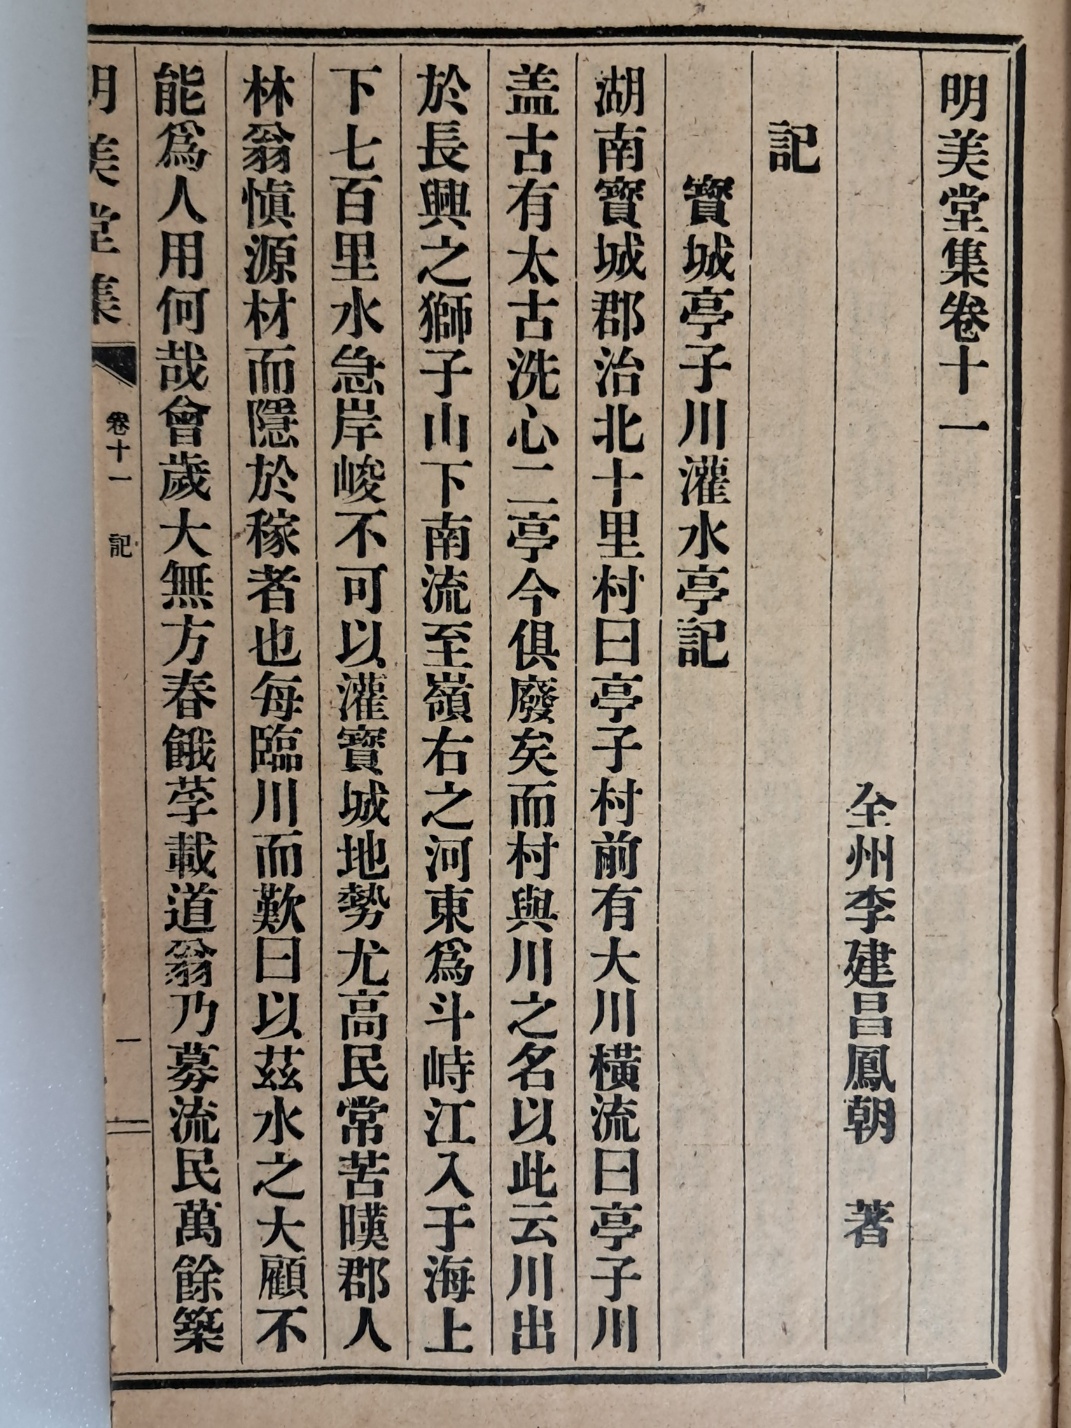 明美堂集卷十一
全州李建昌鳳朝 著
記
寶城亭子川灌水亭記
湖南寶城郡治北十里村曰亭子村前有大川橫流曰亭子川
盖古有太古洗心二亭今俱廢矣而村與川之名以此云川出
於長興之獅子山下南流至嶺右之河東爲斗峙江入于海上
下七百里水急岸峻不可以灌寶城地勢尤高民常苦暵郡人
林翁愼源材而隱於稼者也每臨川而歎曰以茲水之大顧不
能爲人用何哉會歲大無方春餓莩載道翁乃募流民萬餘築
明美堂集 卷十一 記 一